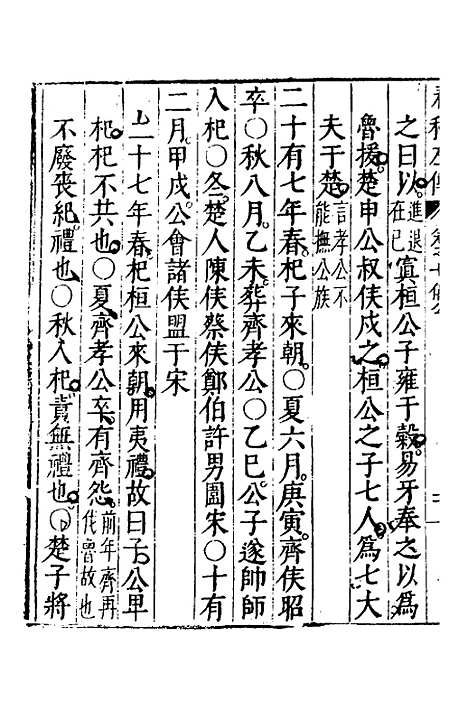 之曰以進退在已寘桓公子雍于穀易牙奉之以為
魯援楚申公叔侯戍之桓公之子七人為七大
夫于楚言孝公不能撫公族
二十有七年春杞子來朝○夏六月庚寅齊侯昭
卒○秋八月乙未葬齊孝公○乙巳公子遂帥師
入杞○冬楚人陳侯蔡侯鄭伯許男圍宋○十有
二月甲戌公會諸侯盟于宋
二十七年春杞桓公來朝用夷禮故曰子公卑
杞杞不共也○夏齊孝公卒有齊怨前年齊再伐魯故也
不廢喪紀禮也○秋入杞責無禮也○楚子將